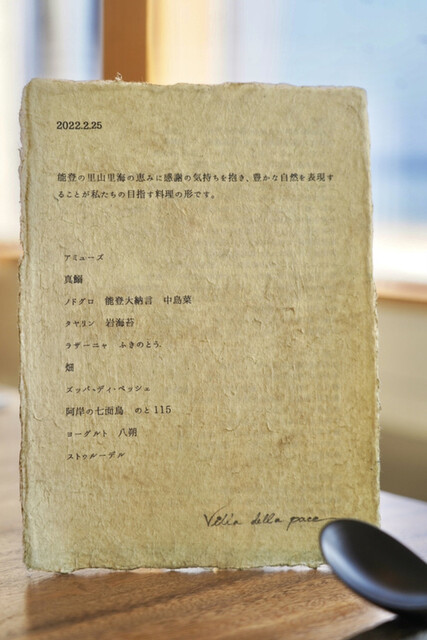 2022.2.25
能登の里山里海の恵みに感謝の気持ちを抱き、豊かな自然を表現す
ることが私たちの目指す料理の形です。
アミューズ
真鰯
ノドグロ 能登大納言 中島菜
タヤリン 岩海苔
ラザーニャ ふきのとう
畑
ズッパ・ディ・ペッシェ
阿岸の七面鳥 のと115
ヨーグルト 八朔
ストゥルーデル
Villa della pace